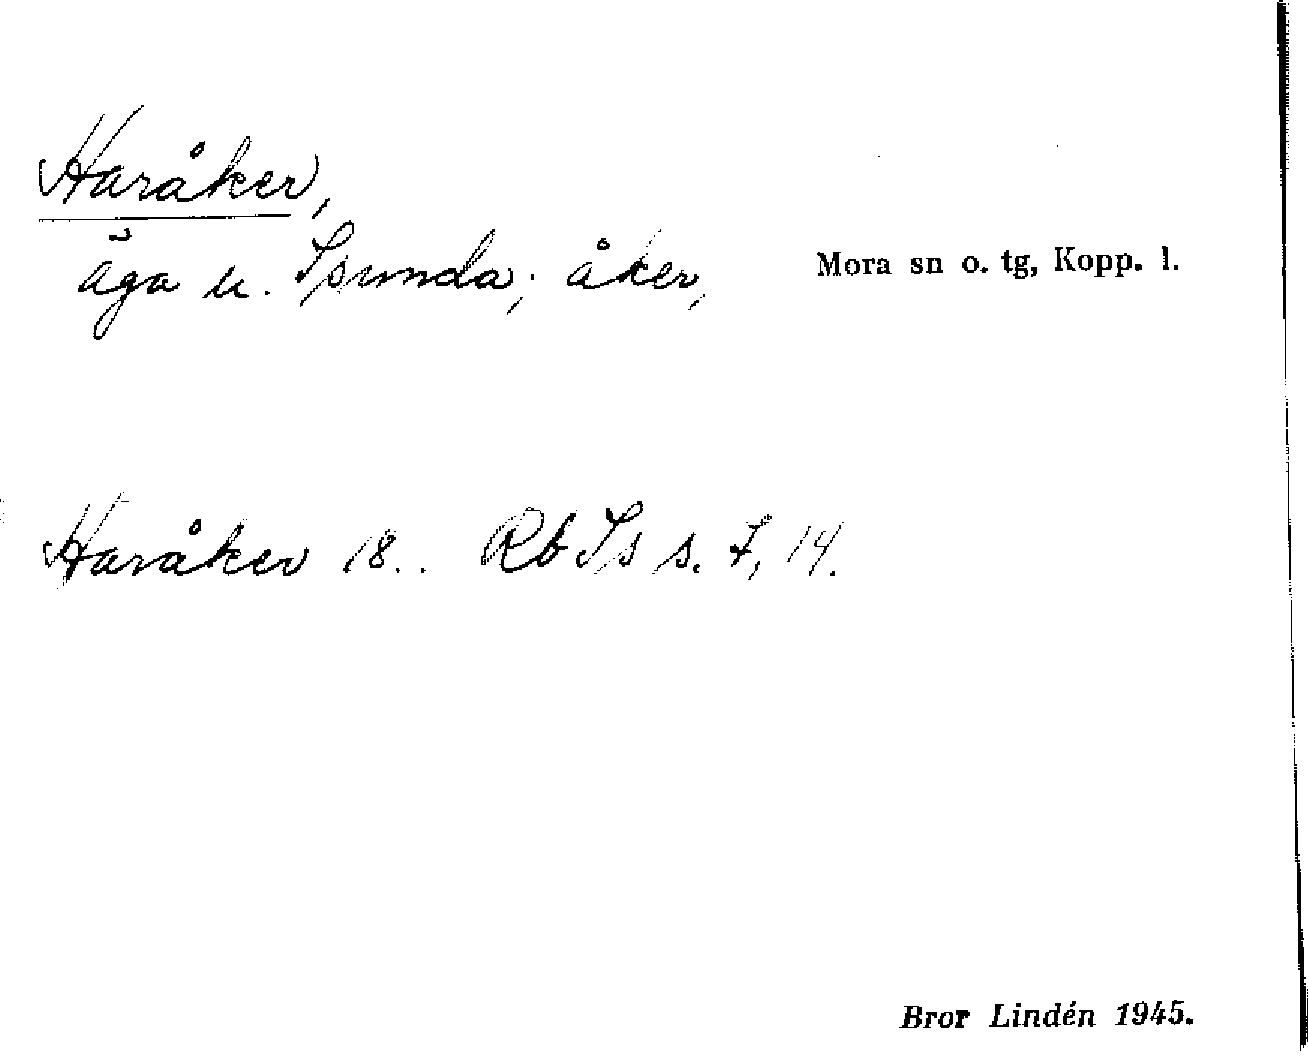 Haråker,
äga u. Isunda; åker,
Mora sn o. tg, Kopp. l.
Haråker 18.. Rb Is s. 7, 14.
Bror Lindén 1945.